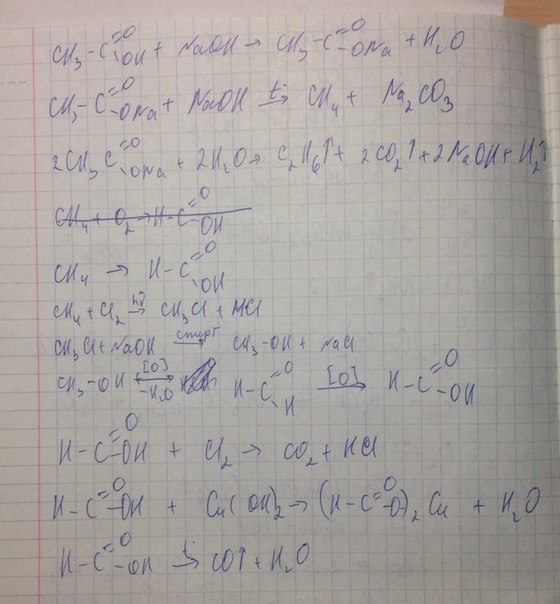 CH₃-C(=O)OH + NaOH → CH₃-C(=O)ONa + H₂O
CH₃-C(=O)ONa + NaOH →(t) CH₄ + Na₂CO₃
2CH₃C(=O)ONa + 2H₂O → C₂H₆↑ + 2CO₂↑ + 2NaOH + H₂↑
CH₄ + O₂ → H-C(=O)OH
CH₄ → H-C(=O)OH
CH₄ + Cl₂ →(hν) CH₃Cl + HCl
CH₃Cl + NaOH →(спирт) CH₃-OH + NaCl
CH₃-OH →([O], -H₂O) H-C(=O)H →([O]) H-C(=O)OH
H-C(=O)OH + Cl₂ → CO₂ + HCl
H-C(=O)OH + Cu(OH)₂ → (H-C(=O)O)₂Cu + H₂O
H-C(=O)OH →(t) CO↑ + H₂O